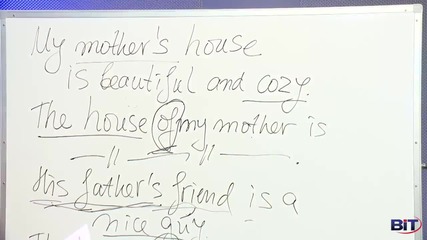 My mother's house
is beautiful and cozy.
The house of my mother is
—//— —//— .
His father's friend is a
nice guy.
BiT